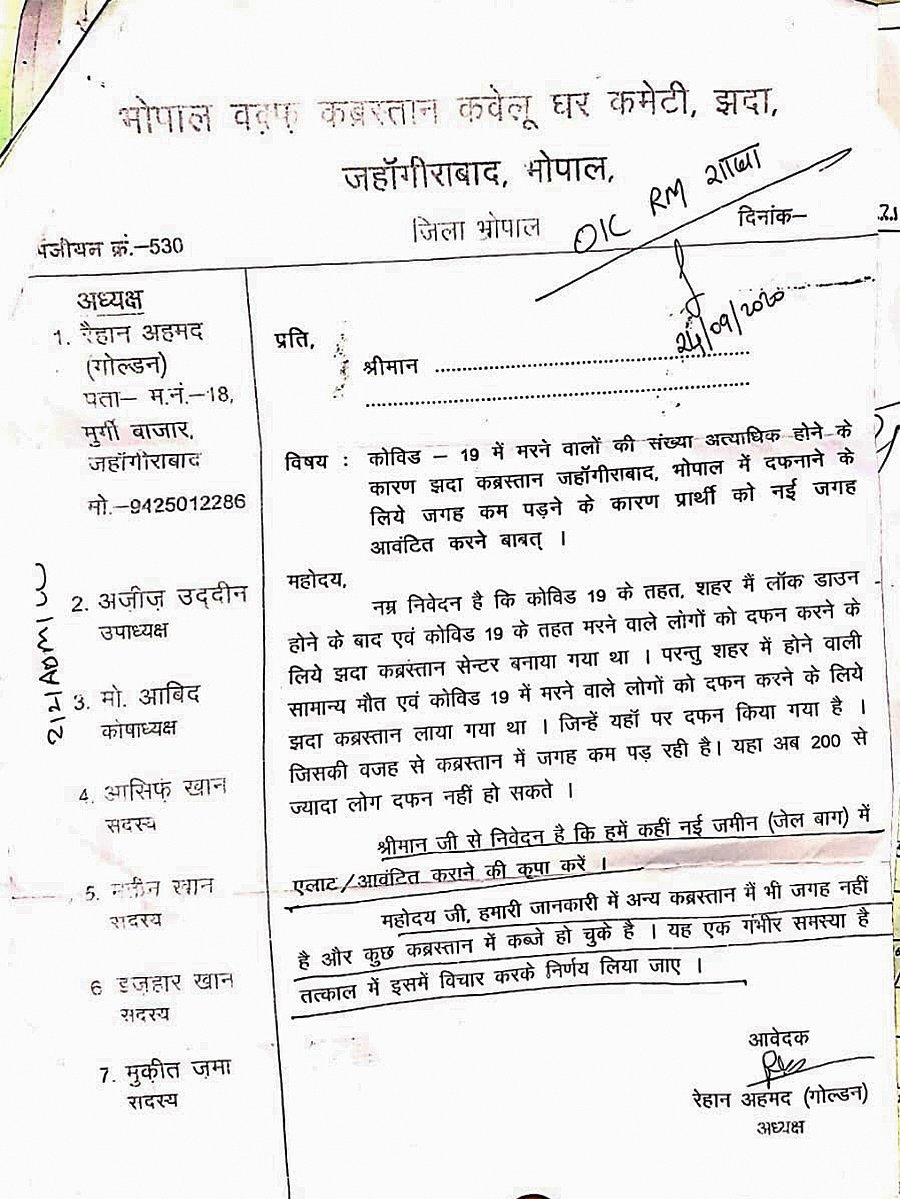 भोपाल वक़्फ़ कब्रस्तान कवेलू घर कमेटी, झदा,
जहॉगीराबाद, भोपाल,
जिला भोपाल
OIC RM शाखा
पंजीयन क्रं.–530
दिनांक–
24/09/2020
अध्यक्ष
1. रैहान अहमद
(गोल्डन)
पता– म.नं.–18,
मुर्गी बाजार,
जहॉगीराबाद
मो.–9425012286
2. अज़ीज़ उद्दीन
उपाध्यक्ष
3. मो. आबिद
कोषाध्यक्ष
4. आसिफ़ खान
सदस्य
5. खान
सदस्य
6 इज़हार खान
सदस्य
7. मुक़ीत ज़मा
सदस्य
प्रति,
श्रीमान
विषय : कोविड – 19 में मरने वालों की संख्या अत्याधिक होने के
कारण झदा कब्रस्तान जहॉगीराबाद, भोपाल में दफनाने के
लिये जगह कम पड़ने के कारण प्रार्थी को नई जगह
आवंटित करने बाबत् ।
महोदय,
नम्र निवेदन है कि कोविड 19 के तहत, शहर में लॉक डाउन
होने के बाद एवं कोविड 19 के तहत मरने वाले लोगों को दफन करने के
लिये झदा कब्रस्तान सेन्टर बनाया गया था । परन्तु शहर में होने वाली
सामान्य मौत एवं कोविड 19 में मरने वाले लोगों को दफन करने के लिये
झदा कब्रस्तान लाया गया था । जिन्हें यहॉ पर दफन किया गया है ।
जिसकी वजह से कब्रस्तान में जगह कम पड़ रही है। यहा अब 200 से
ज्यादा लोग दफन नहीं हो सकते ।
श्रीमान जी से निवेदन है कि हमें कहीं नई जमीन (जेल बाग) में
एलाट/आवंटित कराने की कृपा करें ।
महोदय जी, हमारी जानकारी में अन्य कब्रस्तान में भी जगह नहीं
है और कुछ कब्रस्तान में कब्जे हो चुके है । यह एक गंभीर समस्या है
तत्काल में इसमें विचार करके निर्णय लिया जाए ।
आवेदक
रेहान अहमद (गोल्डन)
अध्यक्ष